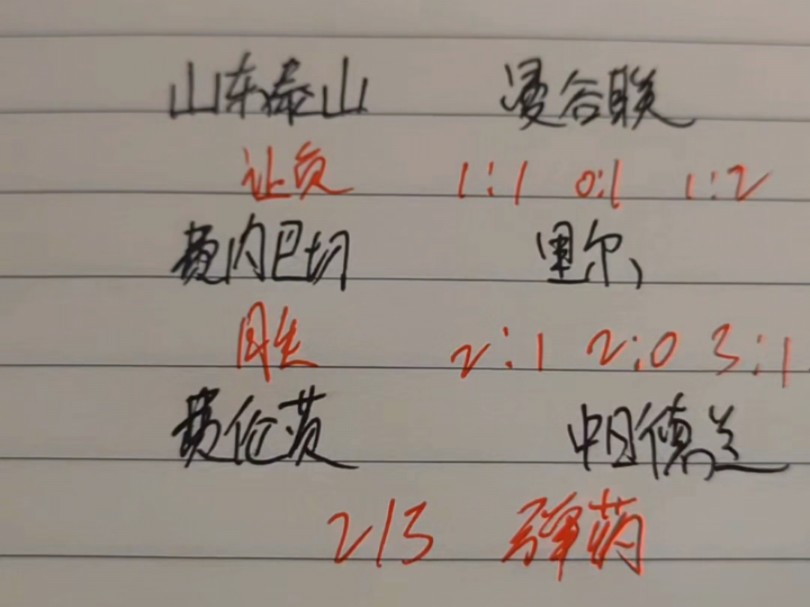 山东泰山 曼谷联
让负 1:1 0:1 1:2
费内巴切 里尔
2:1 2:0 3:1
费伦茨 中日德兰
2/3 弹药